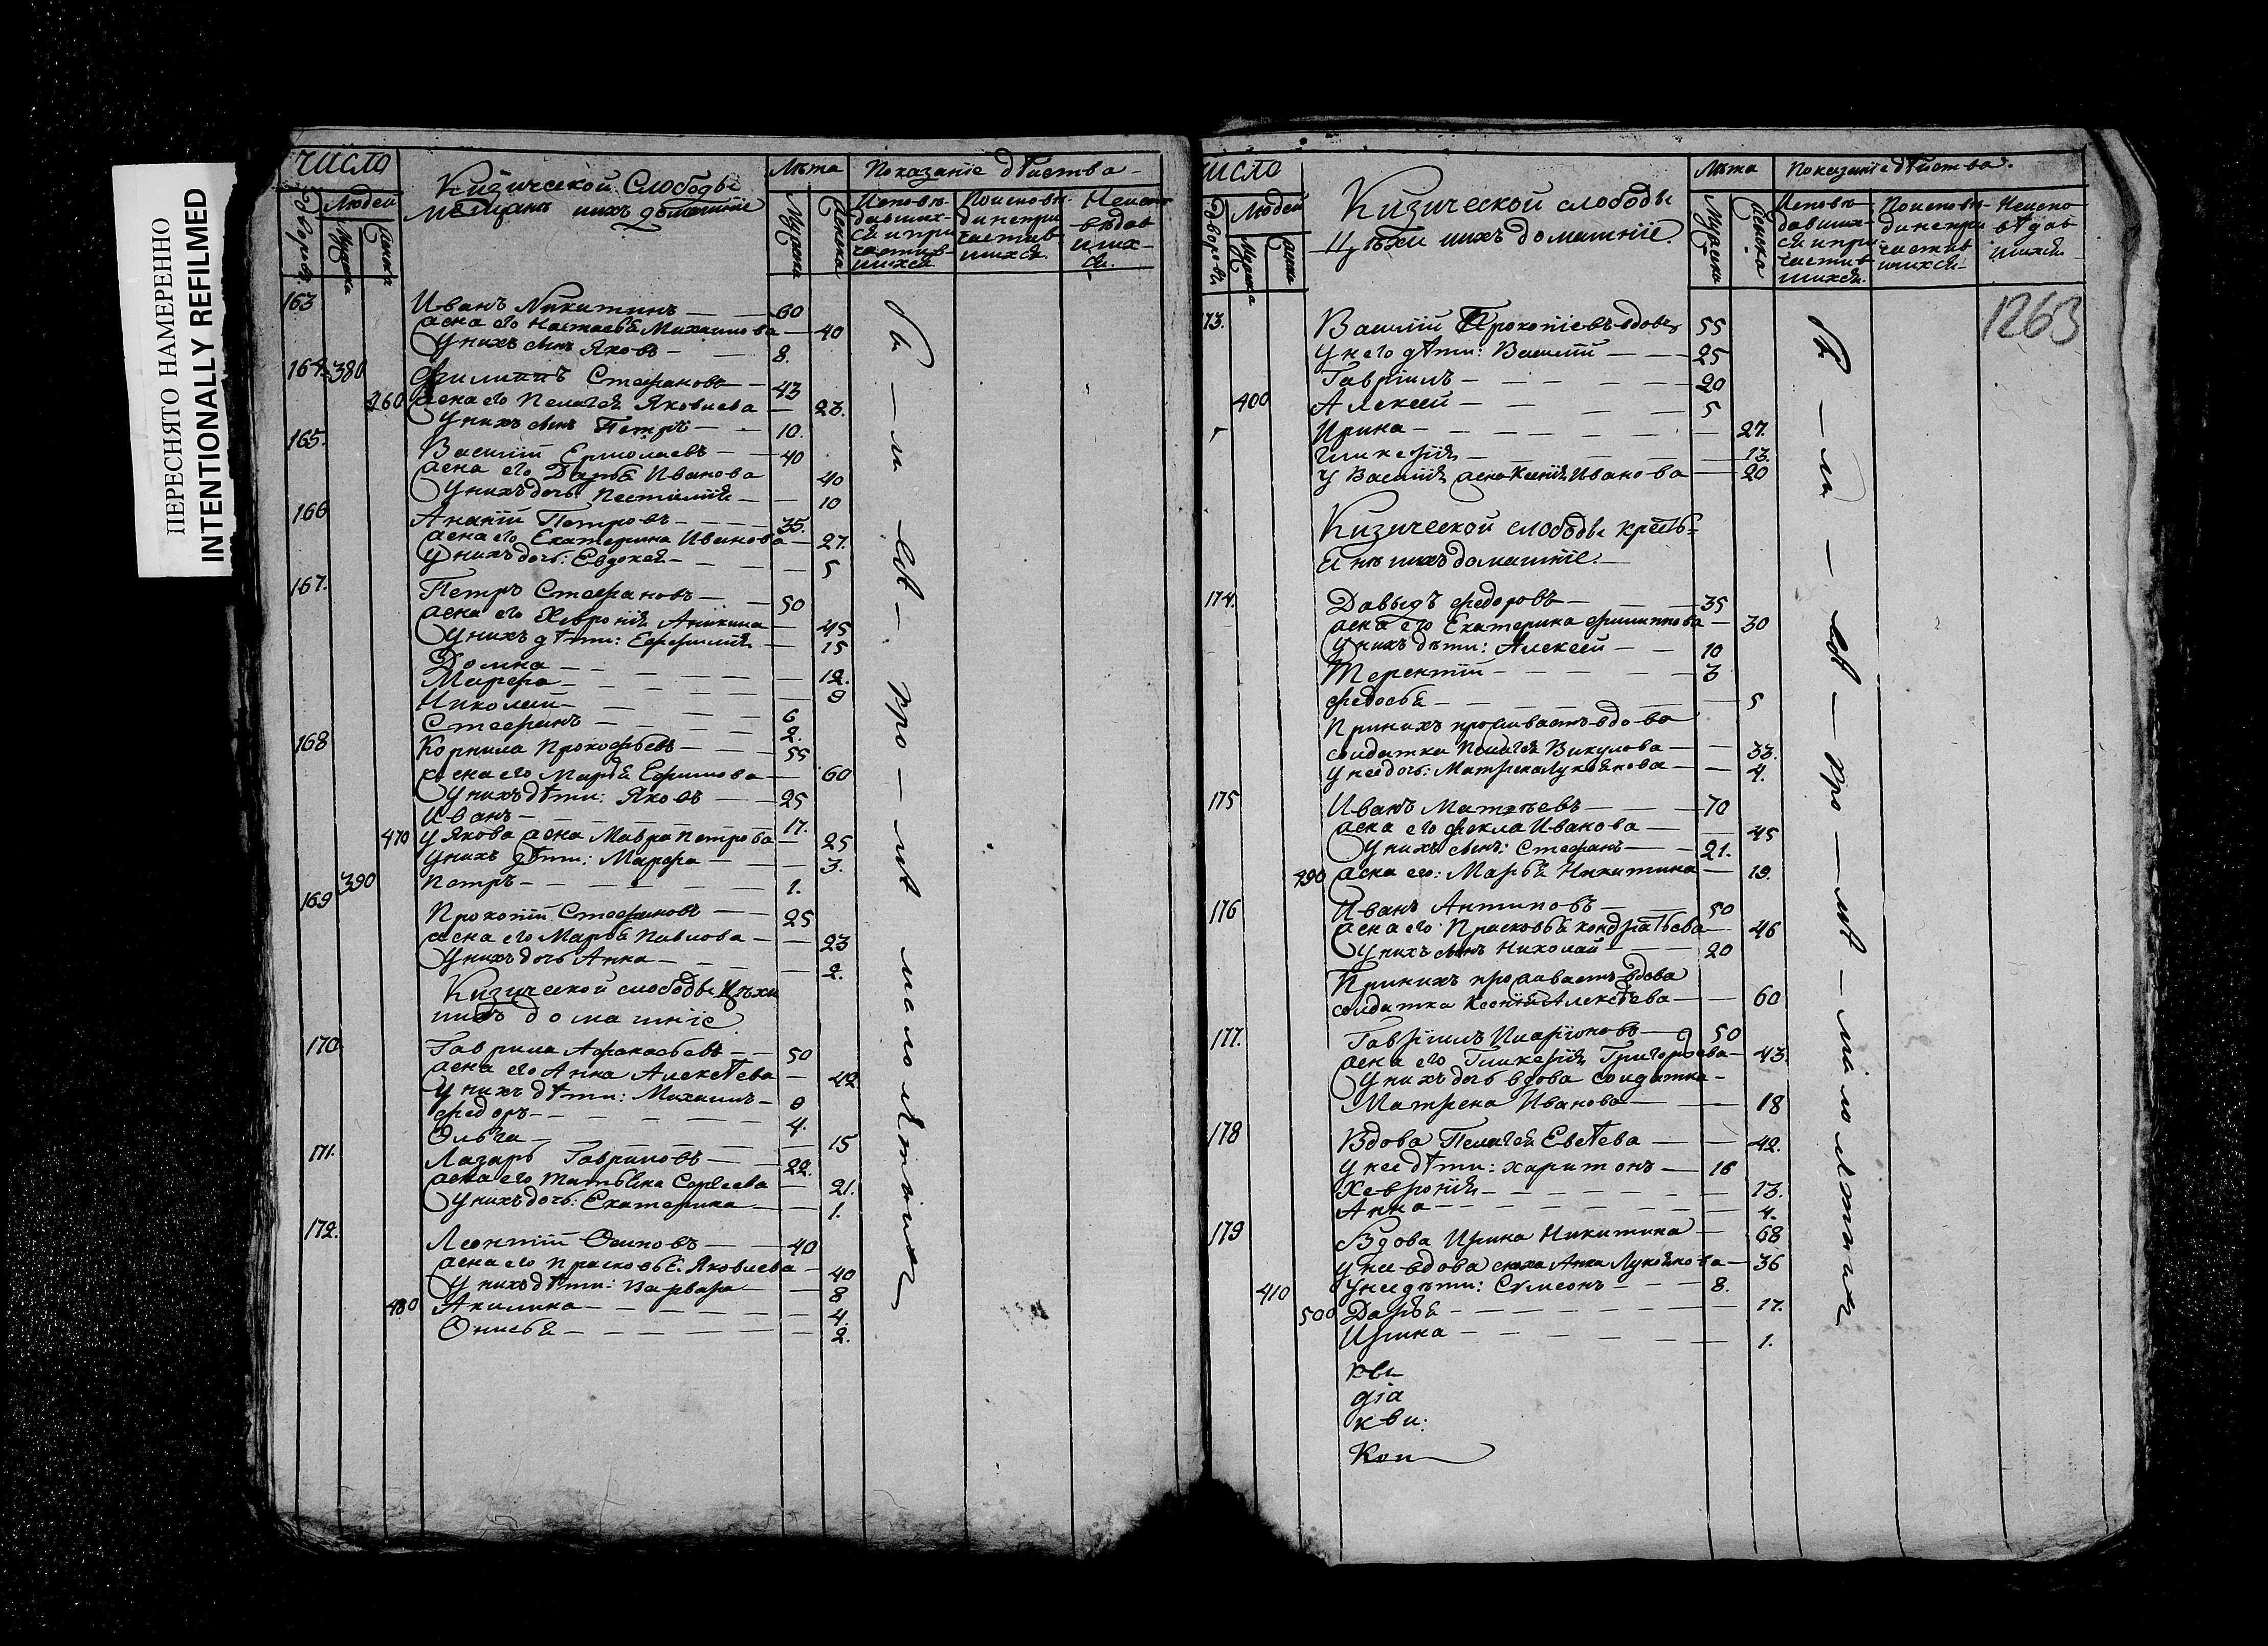 ПЕРЕСНЯТО НАМЕРЕННО
INTENTIONALLY REFILMED
Число
Дворовъ
Людей
Мужска
Женска
Кизической Слободы
Мещанъ ишхъ домашніе
Лѣта
Мужска
Женска
Показаніе дѣйства
Исповѣдавшихся и причастившихся
Поисповѣди непричастившихся
Неисповѣдавшихся
163 Иванъ Никитинъ 60
жена его Настасья Михаилова 40
У нихъ сынъ Яковъ 8.
164. 380 Филиппъ Стефановъ 43
460 жена его Пелагея Яковлева 23.
У нихъ сынъ Петръ 10.
165. Василій Ермолаевъ 40
жена его Дарья Иванова 40
У нихъ дочь 10
166 Ананій Петровъ 35.
жена его Екатерина Иванова 27.
У нихъ дочь: Евдокея 5
167. Петръ Стефановъ 50
жена его Хевронія Аникина 45
У нихъ дѣти: Ефимія 15
Домна 12.
Марфа 9
Николай 6
Стефанъ 2.
168 Корнила Прокофьевъ 55
жена его Марья Ефимова 60
У нихъ дѣти: Яковъ 25
Иванъ 17.
470 У Якова жена Мавра Петрова 25
У нихъ дѣти: Марфа 3.
390 Петръ 1.
169 Прокопій Стефановъ 25
жена его Марья Павлова 23
У нихъ дочь Анна 2.
Кизической слободы Цѣхи
ишхъ домашніе
170 Гаврила Афанасьевъ 50
жена его Анна Алексѣева 42
У нихъ дѣти: Михаилъ 9
Федоръ 4.
Ольга 15
171. Лазарь Гавриловъ 22.
жена его Татьяна Сергеева 21.
У нихъ дочь: Екатерина 1.
172. Леонтій Осиповъ 40
жена его Прасковья Яковлева 40
У нихъ дѣти: Варвара 8
480 Акилина 4.
Онисья 2.
малолѣтних
Число
Дворовъ
Людей
Мужска
Женска
Кизической слободы
Цѣхи ишхъ домашніе.
Лѣта
Мужска
Женска
Показаніе дѣйства.
Исповѣдавшихся и причастившихся.
Поисповѣди непричастившихся
Неисповѣдавшихся
1263
173. Василій Прокопіевъ вдовъ 55
У него дѣти: Василій 25
Гавріилъ 20
400 Алексей 5
Ирина 27.
Гликерія 13.
У Василія жена Ксенія Иванова 20
Кизической слободы кресть-
янъ ишхъ домашніе.
174. Давыдъ Федоровъ 35
жена его Екатерина Филиппова 30
У нихъ дѣти: Алексей 10
Терентій 3
Федосья 5
При нихъ проживаетъ вдова
солдатка Пелагея Викулова 33.
У нее дочь: Матрена Лукьянова 4.
175 Иванъ Матвѣевъ 70
жена его Фекла Иванова 45
У нихъ сынъ: Стефанъ 21.
490 жена его: Марья Никитина 19.
176 Иванъ Антиповъ 50
жена его Прасковья Кондратьева 46
У нихъ сынъ Николай 20
При нихъ проживаетъ вдова
солдатка Ксенія Алексѣева 60
177. Гавріилъ Иларіоновъ 50
жена его Гликерія Григорьева 43
У нихъ дочь вдова солдатка
Матрена Иванова 18
178 Вдова Пелагея Евсѣева 42.
У нее дѣти: Харитонъ 16
Хевронія 13.
Анна 4.
179 Вдова Ирина Никитина 68
У нее вдова сноха Анна Лукоянова 36
410 У нее дѣти: Сумеонъ 8.
500 Дарья 17.
Ирина 1.
малолѣтних